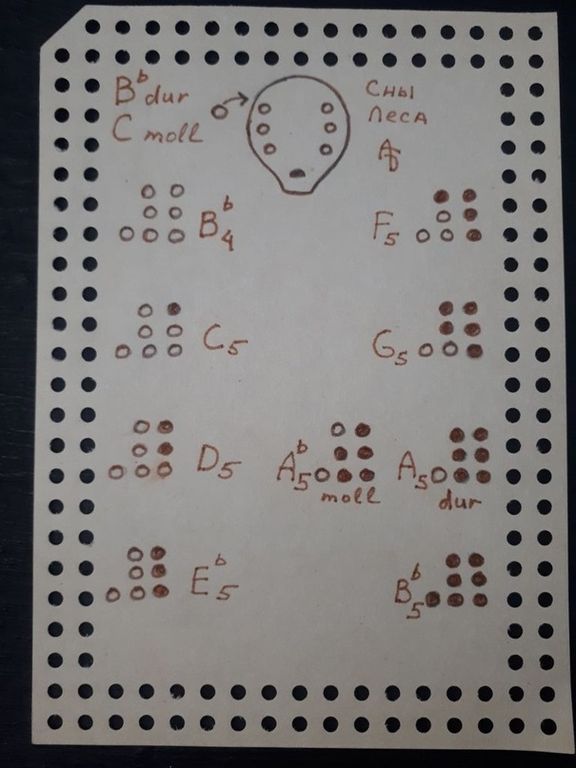 Bb dur
C moll
Сны
Леса
Bb4
F5
C5
G5
D5
Ab5
moll
A5
dur
Eb5
Bb5